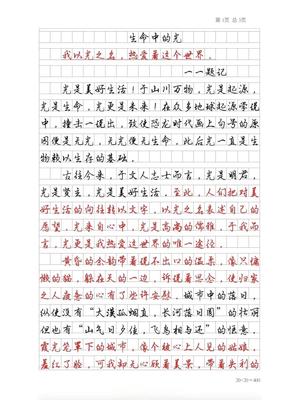 第1页 总3页
生命中的光
我以光之名，热爱着这个世界。
——题记
光是美好生活！于山川万物，光是起源，
光是生命，光更是未来！在众多地球起源学说
中，撞击一说出，致使恐龙时代画上句号的原
因便是无光，无光便无生命，此后光一直是生
物赖以生存的基础。
古往今来，于文人志士而言，光是明君，
光是贤主，光是美好生活。至此，人们把对美
好生活的向往转以文字，以光之名表述自己的
愿望，光来自心中，光是高高的信推，于我而
言，光更是我热爱这世界的唯一途径。
黄昏的余韵带着说不出口的温柔，像只慵
懒的猫，躲在天的一边，诉说着思念，使归家
之人疲惫的心有了些许安慰。城市中的落日，
纵使没有“大漠孤烟直，长河落日圆”的壮丽
但也有“山气日夕佳，飞鸟相与还”的惬意。
霞光笼罩下的城市，像个被心上人见的姑娘，
羞红了脸，可我却无心顾着美景，带着失利的
20×20=400